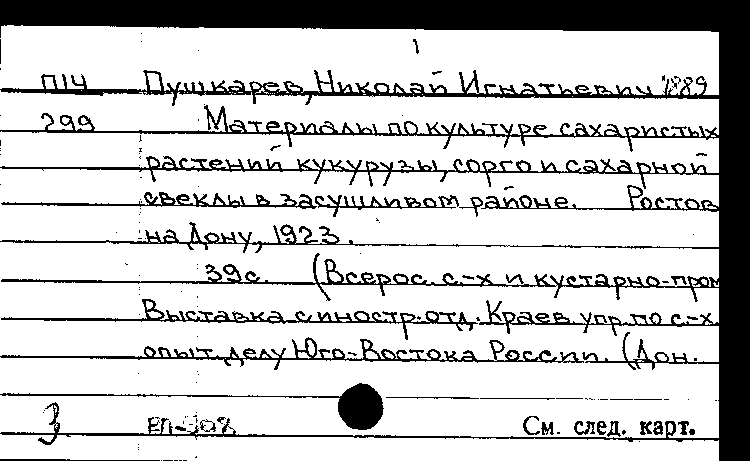 1
П14 Пушкарев, Николай Игнатьевич 1889
299 Материалы по культуре сахаристых
растений кукурузы, сорго и сахарной
свеклы в засушливом районе. Ростов
на Дону, 1923.
39с. (Всерос. с.-х и кустарно-пром
Выставка с иностр. отд. Краев. упр. по с.-х.
опыт. делу Юго-Востока России. (Дон.
3 См. след. карт.